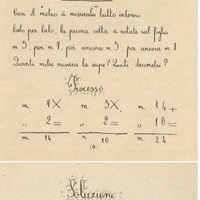 Con il metro à misurato tutto intorno
lato per lato, la prima volta à notato sul foglio
m 5, per m 7, per ancora m 5, per ancora m 7
Quanti metri misura la sup? Quanti decimetri?
Processo
m. 7 X m. 5 X m. 14 +
„ 2 = „ 2 = „ 10 =
m. 14 m. 10 m. 24
Soluzione